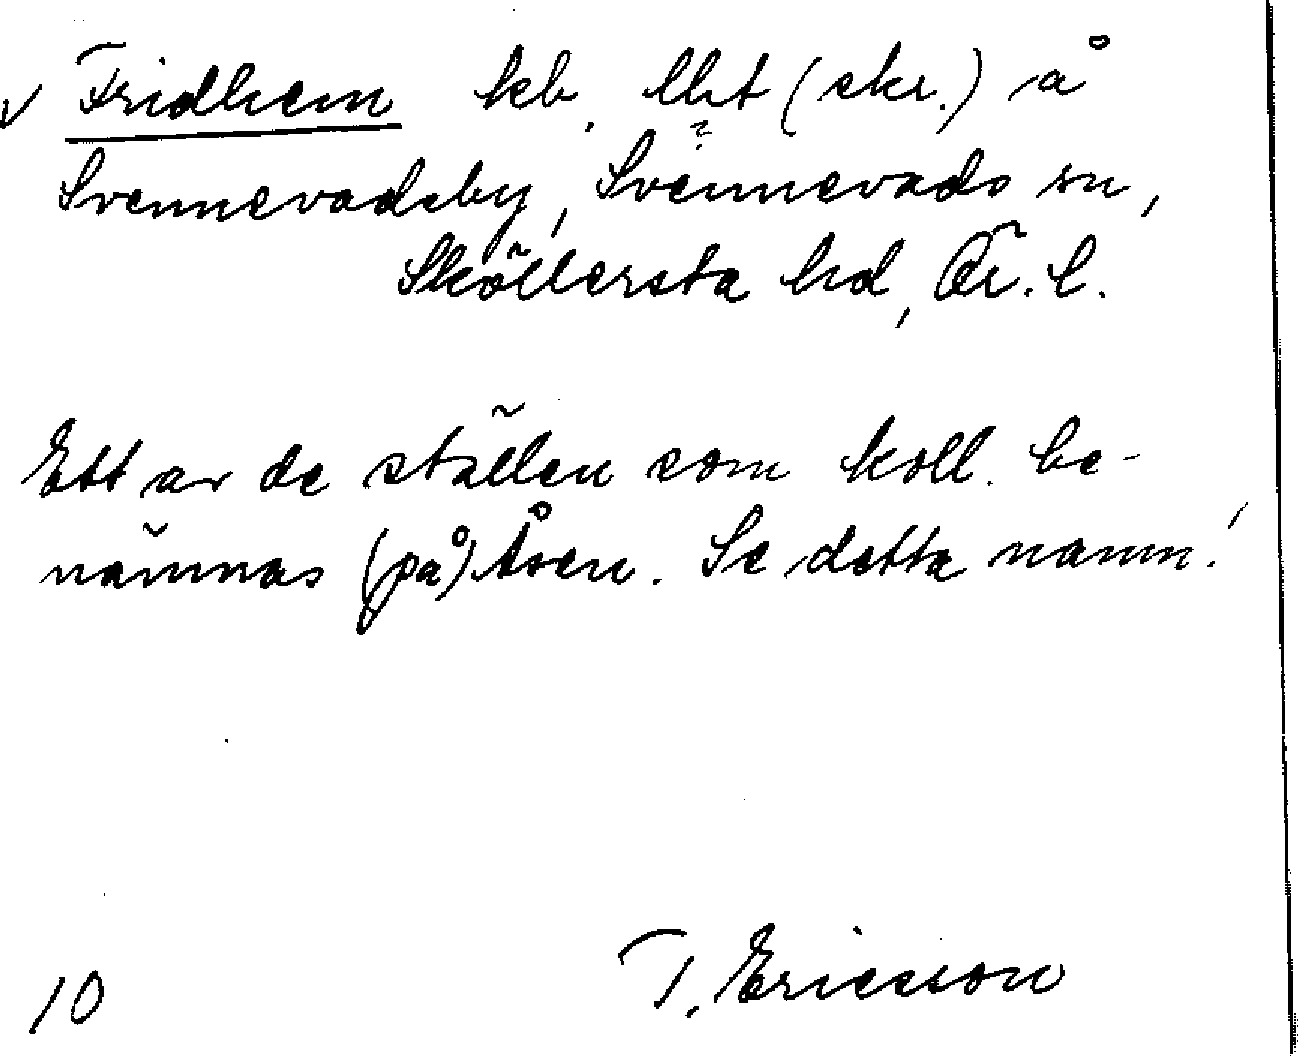 v Fridhem kb, lht (skr.) å
?
Svennevadsby, Svennevads sn,
Sköllersta hd, Ör. l.
Ett av de ställen som koll. be-
nämnas (på) Åsen. Se detta namn!
10 T. Ericsson